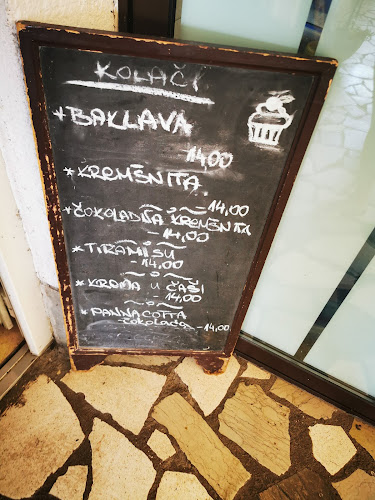 KOLAČI
* BAKLAVA
- 14,00
* KREMŠNITA
- 14,00
* ČOKOLADNA KREMŠNITA
- 14,00
* TIRAMISU
- 14,00
* KREMA U ČAŠI
- 14,00
* PANNACOTTA
ČOKOLADA - 14,00